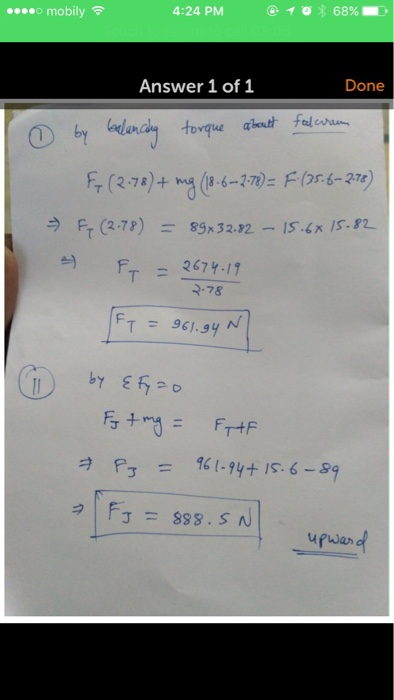 mobily 4:24 PM 68%
Answer 1 of 1 Done
① by balancing torque about fulcrum
F_T (2.78) + mg (18.6-2.78) = F (35.6-2.78)
⇒ F_T (2.78) = 89×32.82 - 15.6× 15.82
⇒ F_T = 2674.19 / 2.78
F_T = 961.94 N
⑪ by ΣF_y = 0
F_J + mg = F_T+F
⇒ F_J = 961.94 + 15.6 - 89
⇒ F_J = 888.5 N
upward